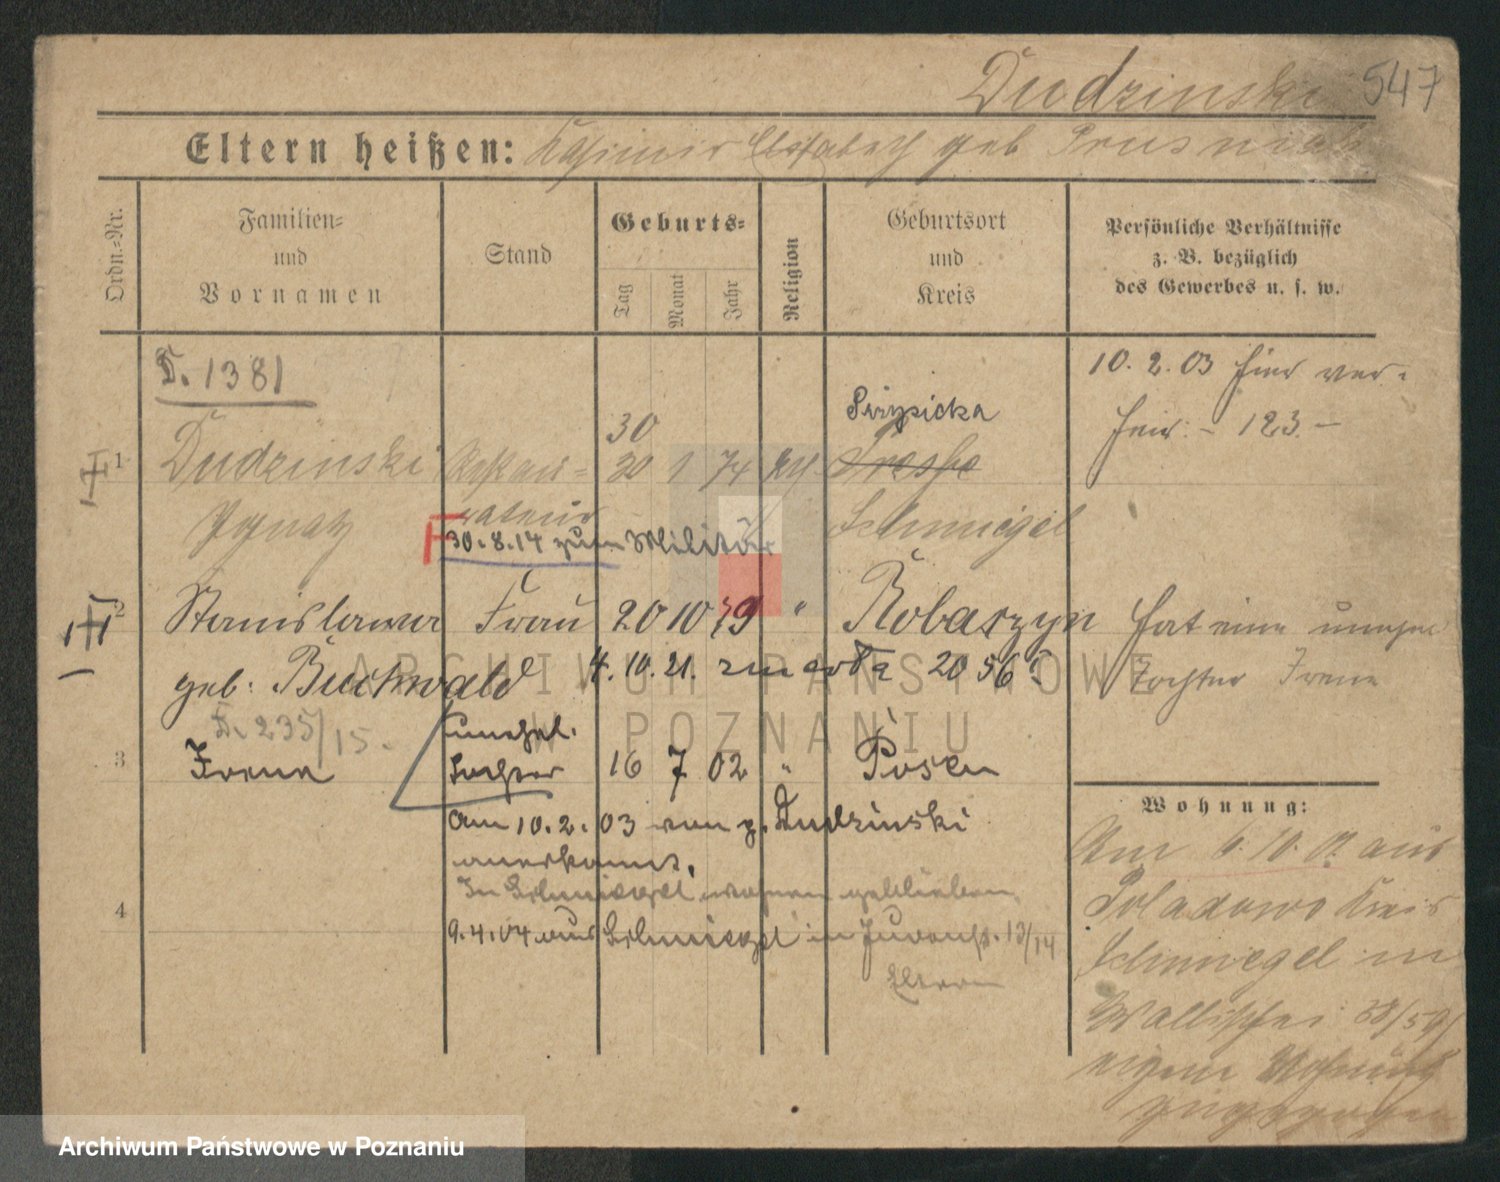 Dudzinski 547
Eltern heißen: Kasimir Elisabeth geb Prusniak
Ordn.-Nr.
Familien-
und
Vornamen
Stand
Geburts-
Tag
Monat
Jahr
Religion
Geburtsort
und
Kreis
Persönliche Verhältnisse
z. B. bezüglich
des Gewerbes u. s. w.
D. 1381
10. 2. 03 hier ver-
heir. - 123 -
30
1 Dudzinski Restau- 20 1 74 kth
Ignatz rateur Schmiegel
F 30.8.14 zum Militär
2 Stanislawa Frau 20 10 79 " Robaszyn hat eine unehel
geb. Buchwald 4. 10. 21. zmarła 2056 Tochter Irena
D. 235/15.
unehel.
3 Irena Tochter 16 7 02 " Posen
Wohnung:
am 10. 2. 03 von g. Dudzinski
anerkannt.
In Schmiegel wohnen geblieben
4
9.4.04 aus Schmiegel in 13/14
Eltern
Am 6. 10. 02 aus
Poladowo Kreis
Schmiegel in
Wallischei 58/59
eigene Wohnung
zugezogen
ARCHIWUM PAŃSTWOWE
W POZNANIU
Archiwum Państwowe w Poznaniu